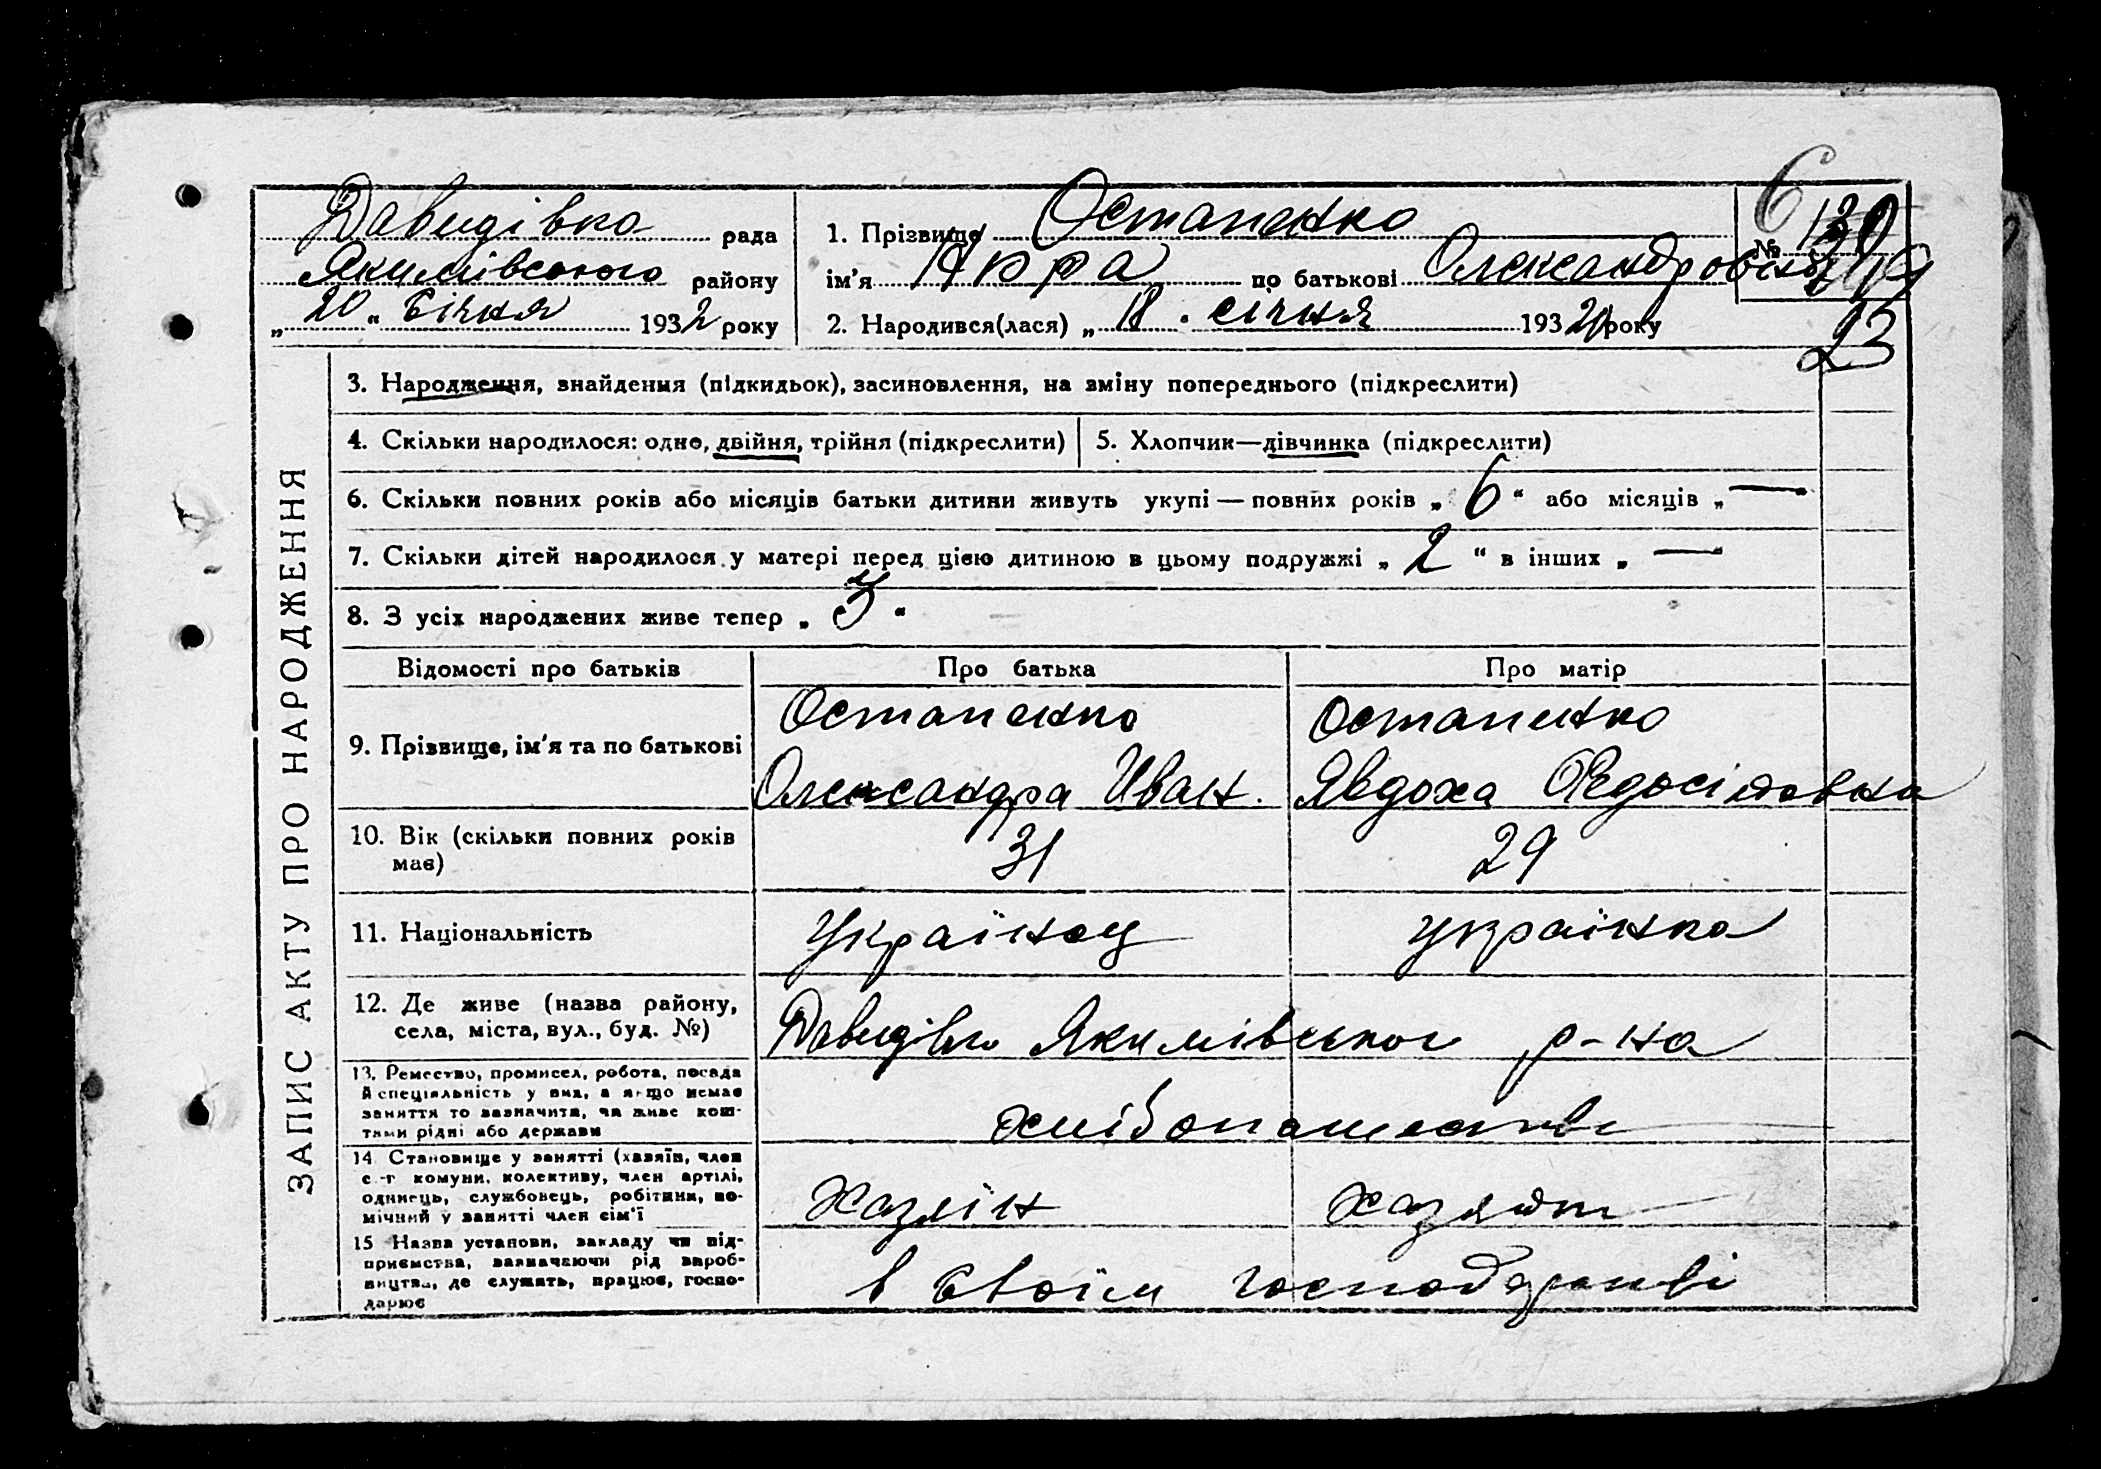 Давидівка рада
Якимівського району
„ 20 “ Січня 1932 року
1. Прізвище Остапенко
ім'я по батькові Олександровна
2. Народився(лася) „ 18 . січня 1932 року
№
6
23
ЗАПИС АКТУ ПРО НАРОДЖЕННЯ
3. Народження, знайдення (підкидьок), засиновлення, на зміну попереднього (підкреслити)
4. Скільки народилося: одне, двійня, трійня (підкреслити) 5. Хлопчик—дівчинка (підкреслити)
6. Скільки повних років або місяців батьки дитини живуть укупі — повних років „ 6 “ або місяців „ —
7. Скільки дітей народилося у матері перед цією дитиною в цьому подружжі „ 2 “ в інших „ — “
8. З усіх народжених живе тепер „ 3 “
Відомості про батьків Про батька Про матір
9. Прізвище, ім'я та по батькові
Остапенко Остапенко
Олександра Иван. Явдоха
10. Вік (скільки повних років має) 31 29
11. Національність Українец українка
12. Де живе (назва району, села, міста, вул., буд. №) Якимівського р-на
13. Ремество, промисел, робота, посада
й спеціяльність у них, а якщо немає
заняття то зазначити, чи живе кош-
тами рідні або держави
14. Становище у занятті (хазяїн, член
с.-г комуни, колективу, член артілі,
одинець, службовець, робітник, по-
мічний у занятті член сім'ї
Хазяїн
15 Назва установи, закладу чи під-
приємства, зазначаючи рід вироб-
ництва, де служить, працює, госпо-
дарює
в своїм господарстві